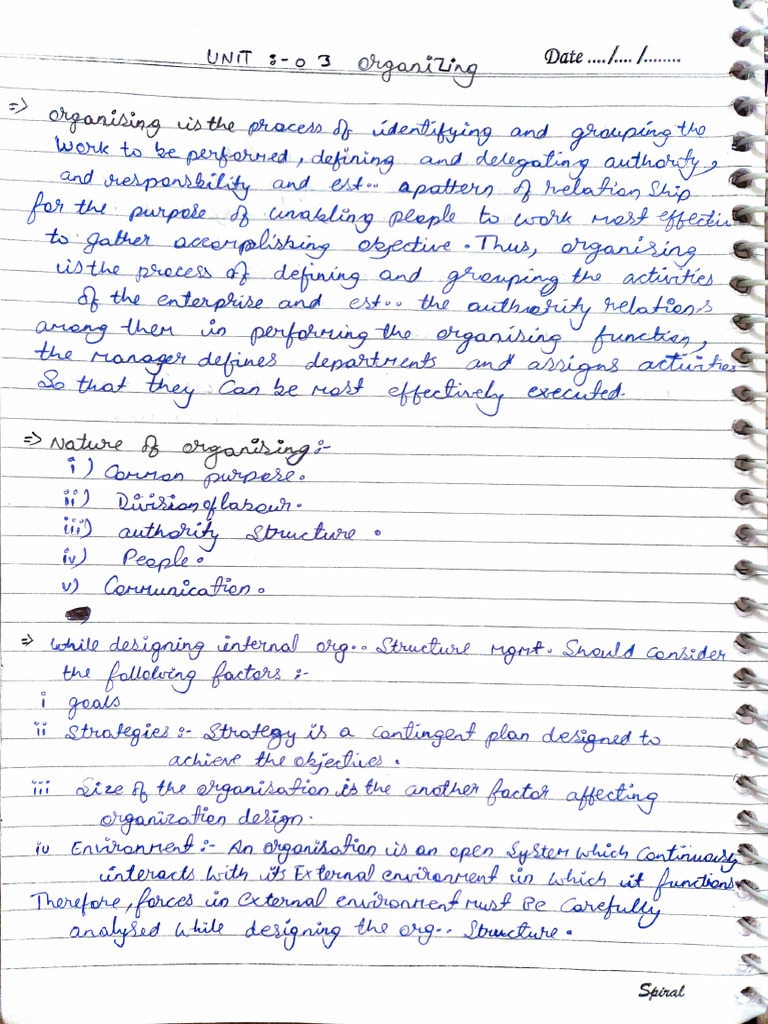 UNIT :- 03 Organizing Date ..../..../........
=> Organising is the process of identifying and grouping the
work to be performed, defining and delegating authority,
and responsbility and est.. a pattern of relation ship
for the purpose of unabling people to work most effectiv
to gather accomplishing objective. Thus, organising
is the process of defining and grouping the activities
of the enterprise and est.. the authority relations
among them in performing the organising function,
the manager defines departments and assigns activities
So that they can be most effectively executed.
=> Nature of organising :-
i) Common purpose.
ii) Division of labour.
iii) authority Structure.
iv) People.
v) Communication.
=> While designing internal org.. Structure mgmt. Should consider
the following factors :-
i goals
ii Strategies :- Strategy is a contingent plan designed to
achieve the objectives.
iii Size of the organisation is the another factor affecting
organization design.
iv Environment :- An organisation is an open System which Continuously
interacts with its External environment in which it functions
Therefore, forces in external environment must Be Carefully
analysed while designing the org.. Structure.
Spiral